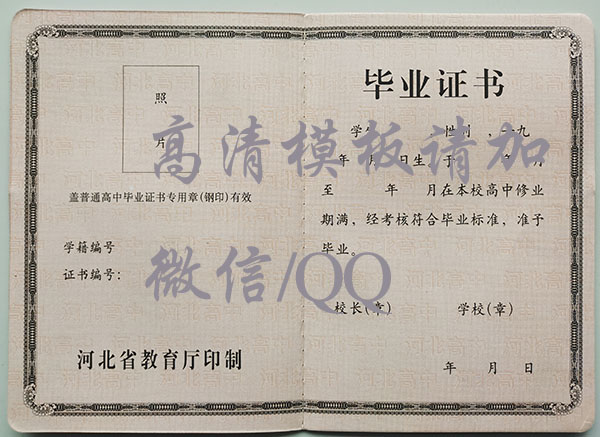 照
片
盖普通高中毕业证书专用章(钢印)有效
学籍编号
证书编号:
河北省教育厅印制
毕业证书
学生 性别 , 一九
年 月 日生,于 年 月
至 年 月在本校高中修业
期满,经考核符合毕业标准,准予
毕业。
校长(章) 学校(章)
年 月 日
高清模板请加
微信/QQ